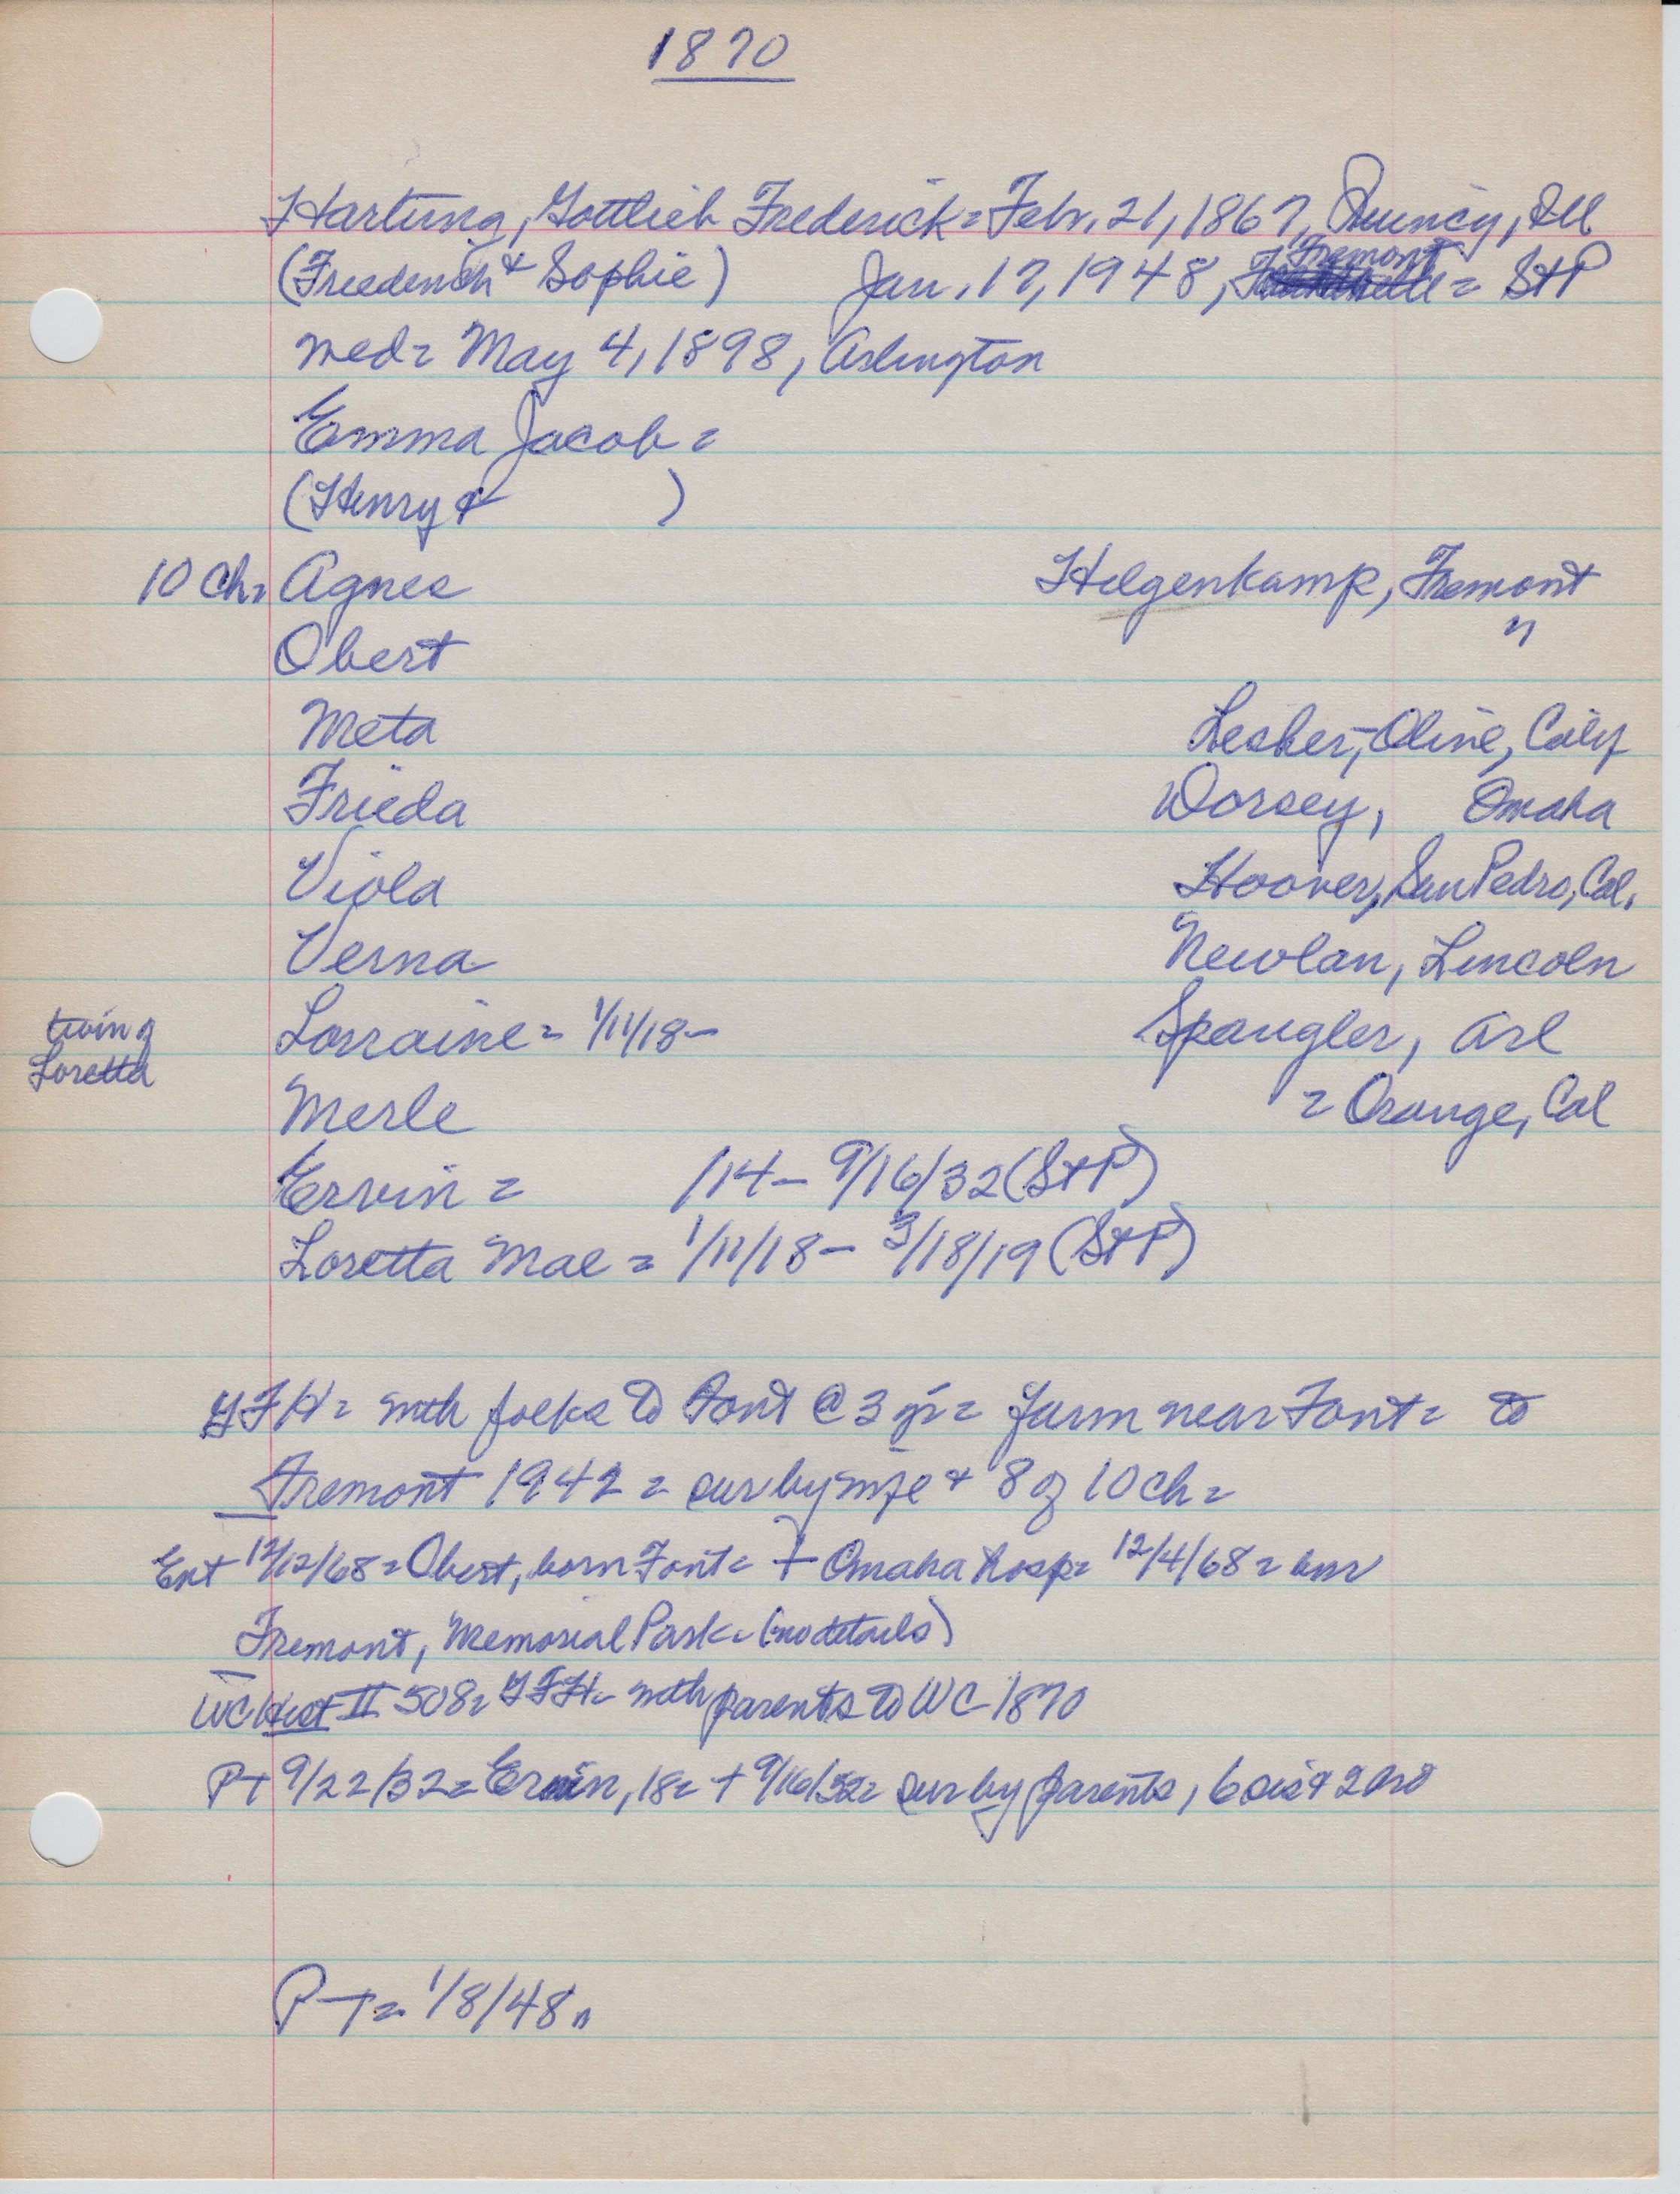 1870
Hartung, Gottlieb Frederick = Febr. 21, 1867, Quincy, Ill
(Freederich & Sophie) Jan. 17, 1948, Fremont = St P
wed = May 4, 1898, Arlington
Emma Jacob =
(Henry & )
10 ch = Agnes Hilgenkamp, Fremont
Obert "
Meta Lesher, Olive, Calif
Frieda Dorsey, Omaha
Viola Hoover, San Pedro, Cal.
Verna Newlan, Lincoln
twin of Loretta Lorraine = 1/11/18 – Spangler, Arl
Merle = Orange, Cal
Ervin = /14 – 9/16/32 (St P)
Loretta Mae = 1/11/18 – 3/18/19 (St P)
GFH = with folks to Font @ 3 yr = farm near Font = to
Fremont 1942 = sur by wife & 8 of 10 ch =
Ent 12/12/68 = Obert, born Font = + Omaha hosp = 12/4/68 = bur
Fremont, Memorial Park = (no details)
WC Hist II 508 = GFH = with parents to WC – 1870
PT 9/22/32 = Ervin, 18 = + 9/16/32 = sur by parents, 6 sis & 2 bro
PT = 1/8/48